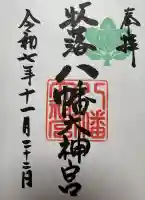 奉拝
落八幡大神宮
令和七年十一月二十二日
八幡